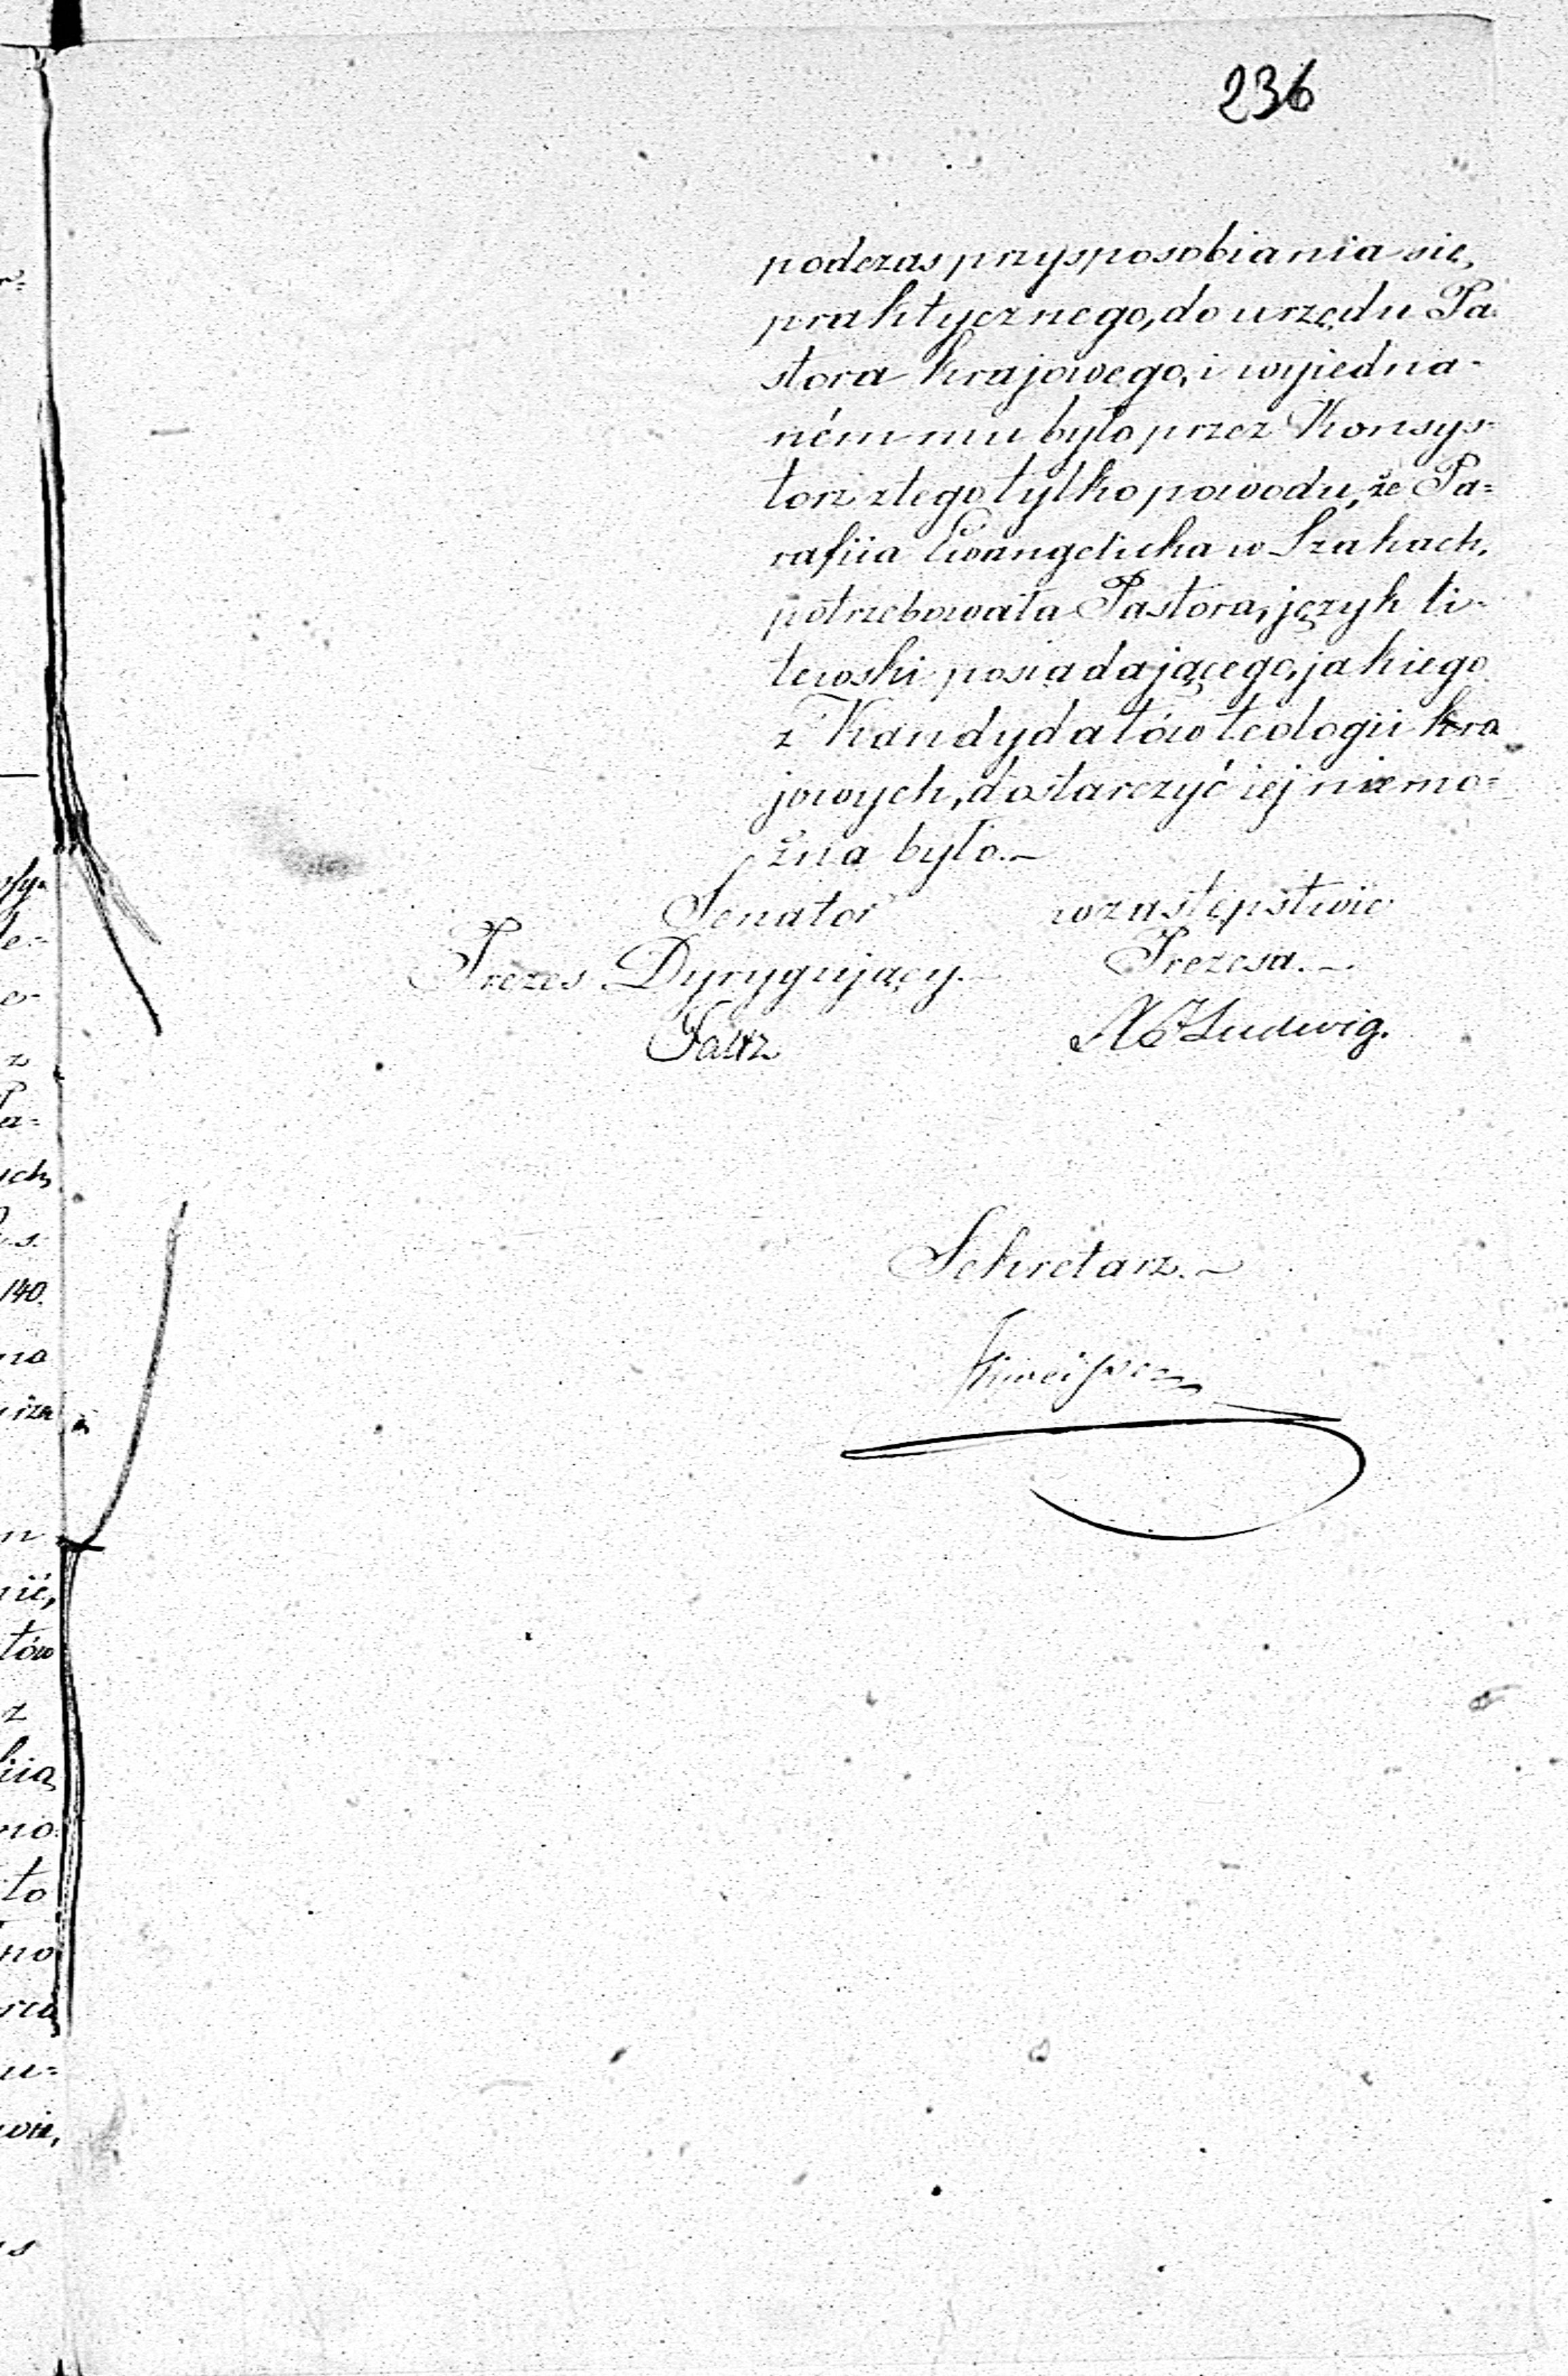 236
podczas przysposobiania się,
praktycznego, do urzędu Pa-
stora krajowego, i wyjedna-
ném mu było przez Konsys-
torz z tego tylko powodu, że Pa=
rafiia Ewangelicka w Szakach,
potrzebowała Pastora, język li-
tewski posiadającego, jakiego
z Kandydatów teologii kra
jowych, dostarczyć iej niemo=
żna było.—
Senator w zastępstwie
Prezes Dyrygujący.— Prezesa.—
Faltz Ludwig.
Sekretarz.—